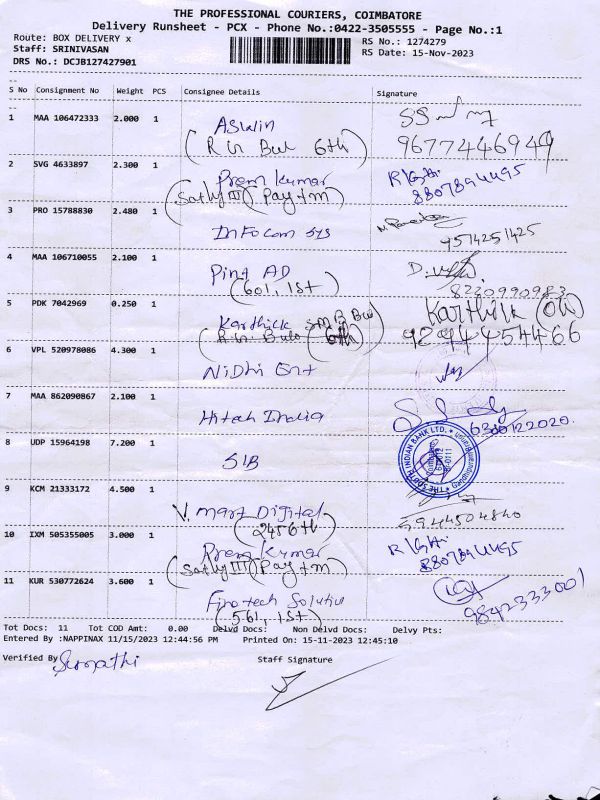 THE PROFESSIONAL COURIERS, COIMBATORE
Delivery Runsheet - PCX - Phone No.:0422-3505555 - Page No.:1
Route: BOX DELIVERY x
RS No.: 1274279
Staff: SRINIVASAN
RS Date: 15-Nov-2023
DRS No.: DCJB127427901
S No Consignment No Weight PCS Consignee Details Signature
1 MAA 106472333 2.000 1 Aswin
(R in 6th) 9677446949
2 SVG 4633897 2.300 1 Prem Kumar
(Sathy III) (Paytm) 8807894495
3 PRO 15788830 2.480 1 InFocom sys
9514251425
4 MAA 106710055 2.100 1 Ping AD
(601, 1st) 8220990983
5 PDK 7042969 0.250 1 Karthick SMB Karthick
(6th) 9294454466
6 VPL 520978086 4.300 1 NiDhi Ent
7 MAA 862090867 2.100 1 Hitech India
6300122020
8 UDP 15964198 7.200 1 SIB
THE SOUTH INDIAN BANK LTD.
9 KCM 21333172 4.500 1 V. mart Digital
5944504840
10 IXM 505355005 3.000 1 Prem Kumar
(Sathy III) (Paytm) 8807894495
11 KUR 530772624 3.600 1
(561, 1st) 9842333001
Tot Docs: 11 Tot COD Amt: 0.00 Delvd Docs: Non Delvd Docs: Delvy Pts:
Entered By :NAPPINAX 11/15/2023 12:44:56 PM Printed On: 15-11-2023 12:45:10
Verified By Sumathi
Staff Signature